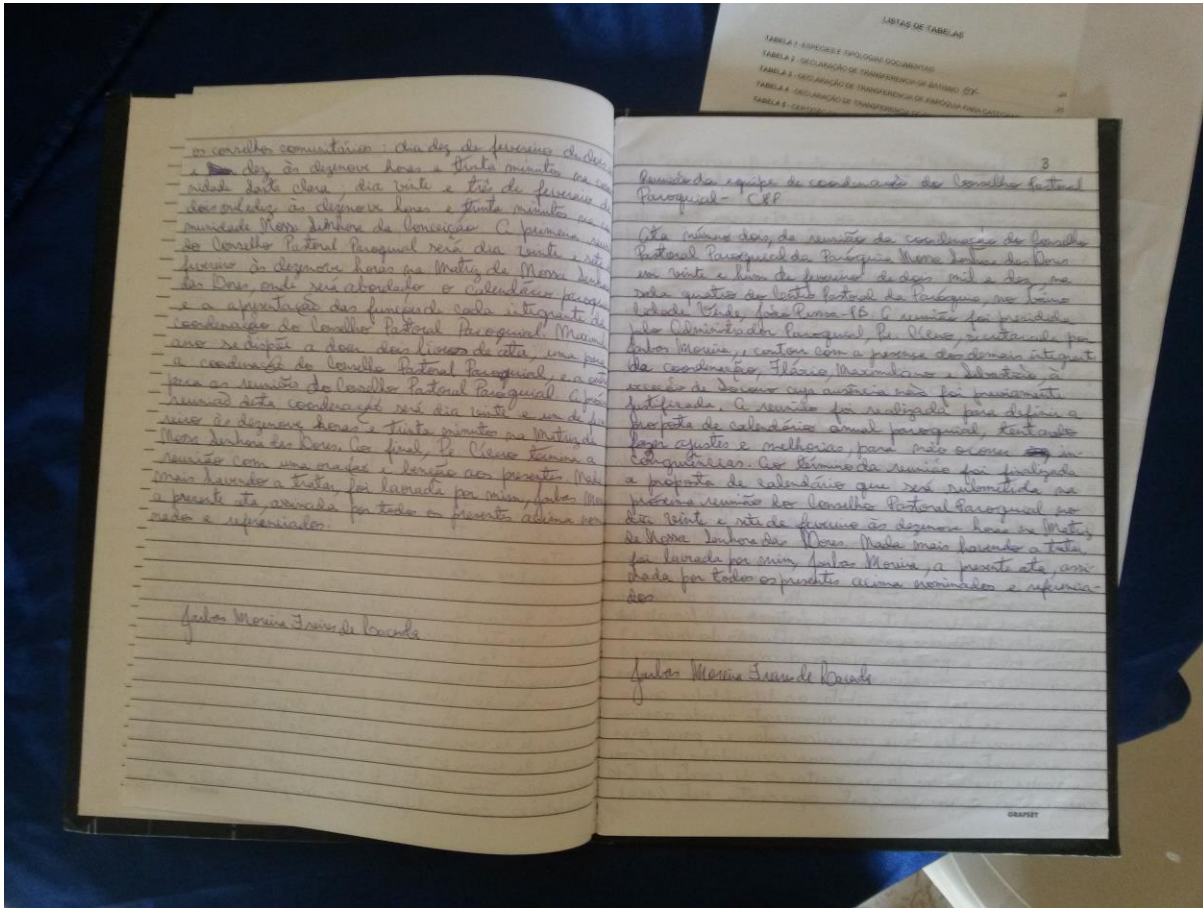 LISTAS DE TABELAS
TABELA 1 - ESPÉCIES E TIPOLOGIAS DOCUMENTAIS
TABELA 2 - DECLARAÇÃO DE TRANSFERÊNCIA DE BATISMO
TABELA 3 - DECLARAÇÃO DE TRANSFERÊNCIA DE PARÓQUIA PARA
TABELA 4 - DECLARAÇÃO DE TRANSFERÊNCIA DE
TABELA 5 -
os conselhos comunitários: dia dez de fevereiro de dois
e dez às dezenove horas e trinta minutos na comu
nidade Santa Clara; dia vinte e três de fevereiro de
dois mil e dez, às dezenove horas e trinta minutos na co
munidade Nossa Senhora da Conceição. A primeira reuni
do Conselho Pastoral Paroquial será dia vinte e sete
fevereiro às dezenove horas na Matriz de Nossa Senho
das Dores, onde será abordado o calendário paroqui
e a apresentação das funções de cada integrante da
coordenação do Conselho Pastoral Paroquial. Maximili
ano se dispõe a doar dois livros de ata, uma para
a coordenação do Conselho Pastoral Paroquial, e a outra
para as reuniões do Conselho Pastoral Paroquial. A próxi
reunião desta coordenação será dia vinte e um de feve
reiro às dezenove horas e trinta minutos na Matriz de
Nossa Senhora das Dores. Ao final, Pe. termina a
reunião com uma oração e benção aos presentes. Nada
mais havendo a tratar, foi lavrada por mim, Jarbas Mor
a presente ata, assinada por todos os presentes acima nomi
nados e referenciados.
Jarbas Moreira Freires de Lacerda
3
Reunião da equipe de coordenação do Conselho Pastoral
Paroquial - CPP
Ata número dois, da reunião da coordenação do Conselho
Pastoral Paroquial da Paróquia Nossa Senhora das Dores
em vinte e hum de fevereiro de dois mil e dez, na
sala quatro do Centro Pastoral da Paróquia, no bairro
Cidade Verde, João Pessoa-PB. A reunião foi presidida
pelo Administrador Paroquial, Pe. secretariada por
Jarbas Moreira, contou com a presença dos demais integrant
da coordenação, Flávio, Maximiliano e Sebastião, à
exceção de Socorro cuja ausência não foi previamente
justificada. A reunião foi realizada para definir a
proposta de calendário anual paroquial, tentando
fazer ajustes e melhorias, para não ocorrer in
congruências. Ao término da reunião foi finalizada
a proposta de calendário que será submetida na
próxima reunião do Conselho Pastoral Paroquial no
dia vinte e sete de fevereiro às dezenove horas na Matriz
de Nossa Senhora das Dores. Nada mais havendo a tratar,
foi lavrada por mim, Jarbas Moreira, a presente ata, assi
nada por todos os presentes acima nominados e referencia-
dos.
Jarbas Moreira Freires de Lacerda
GRAFSET